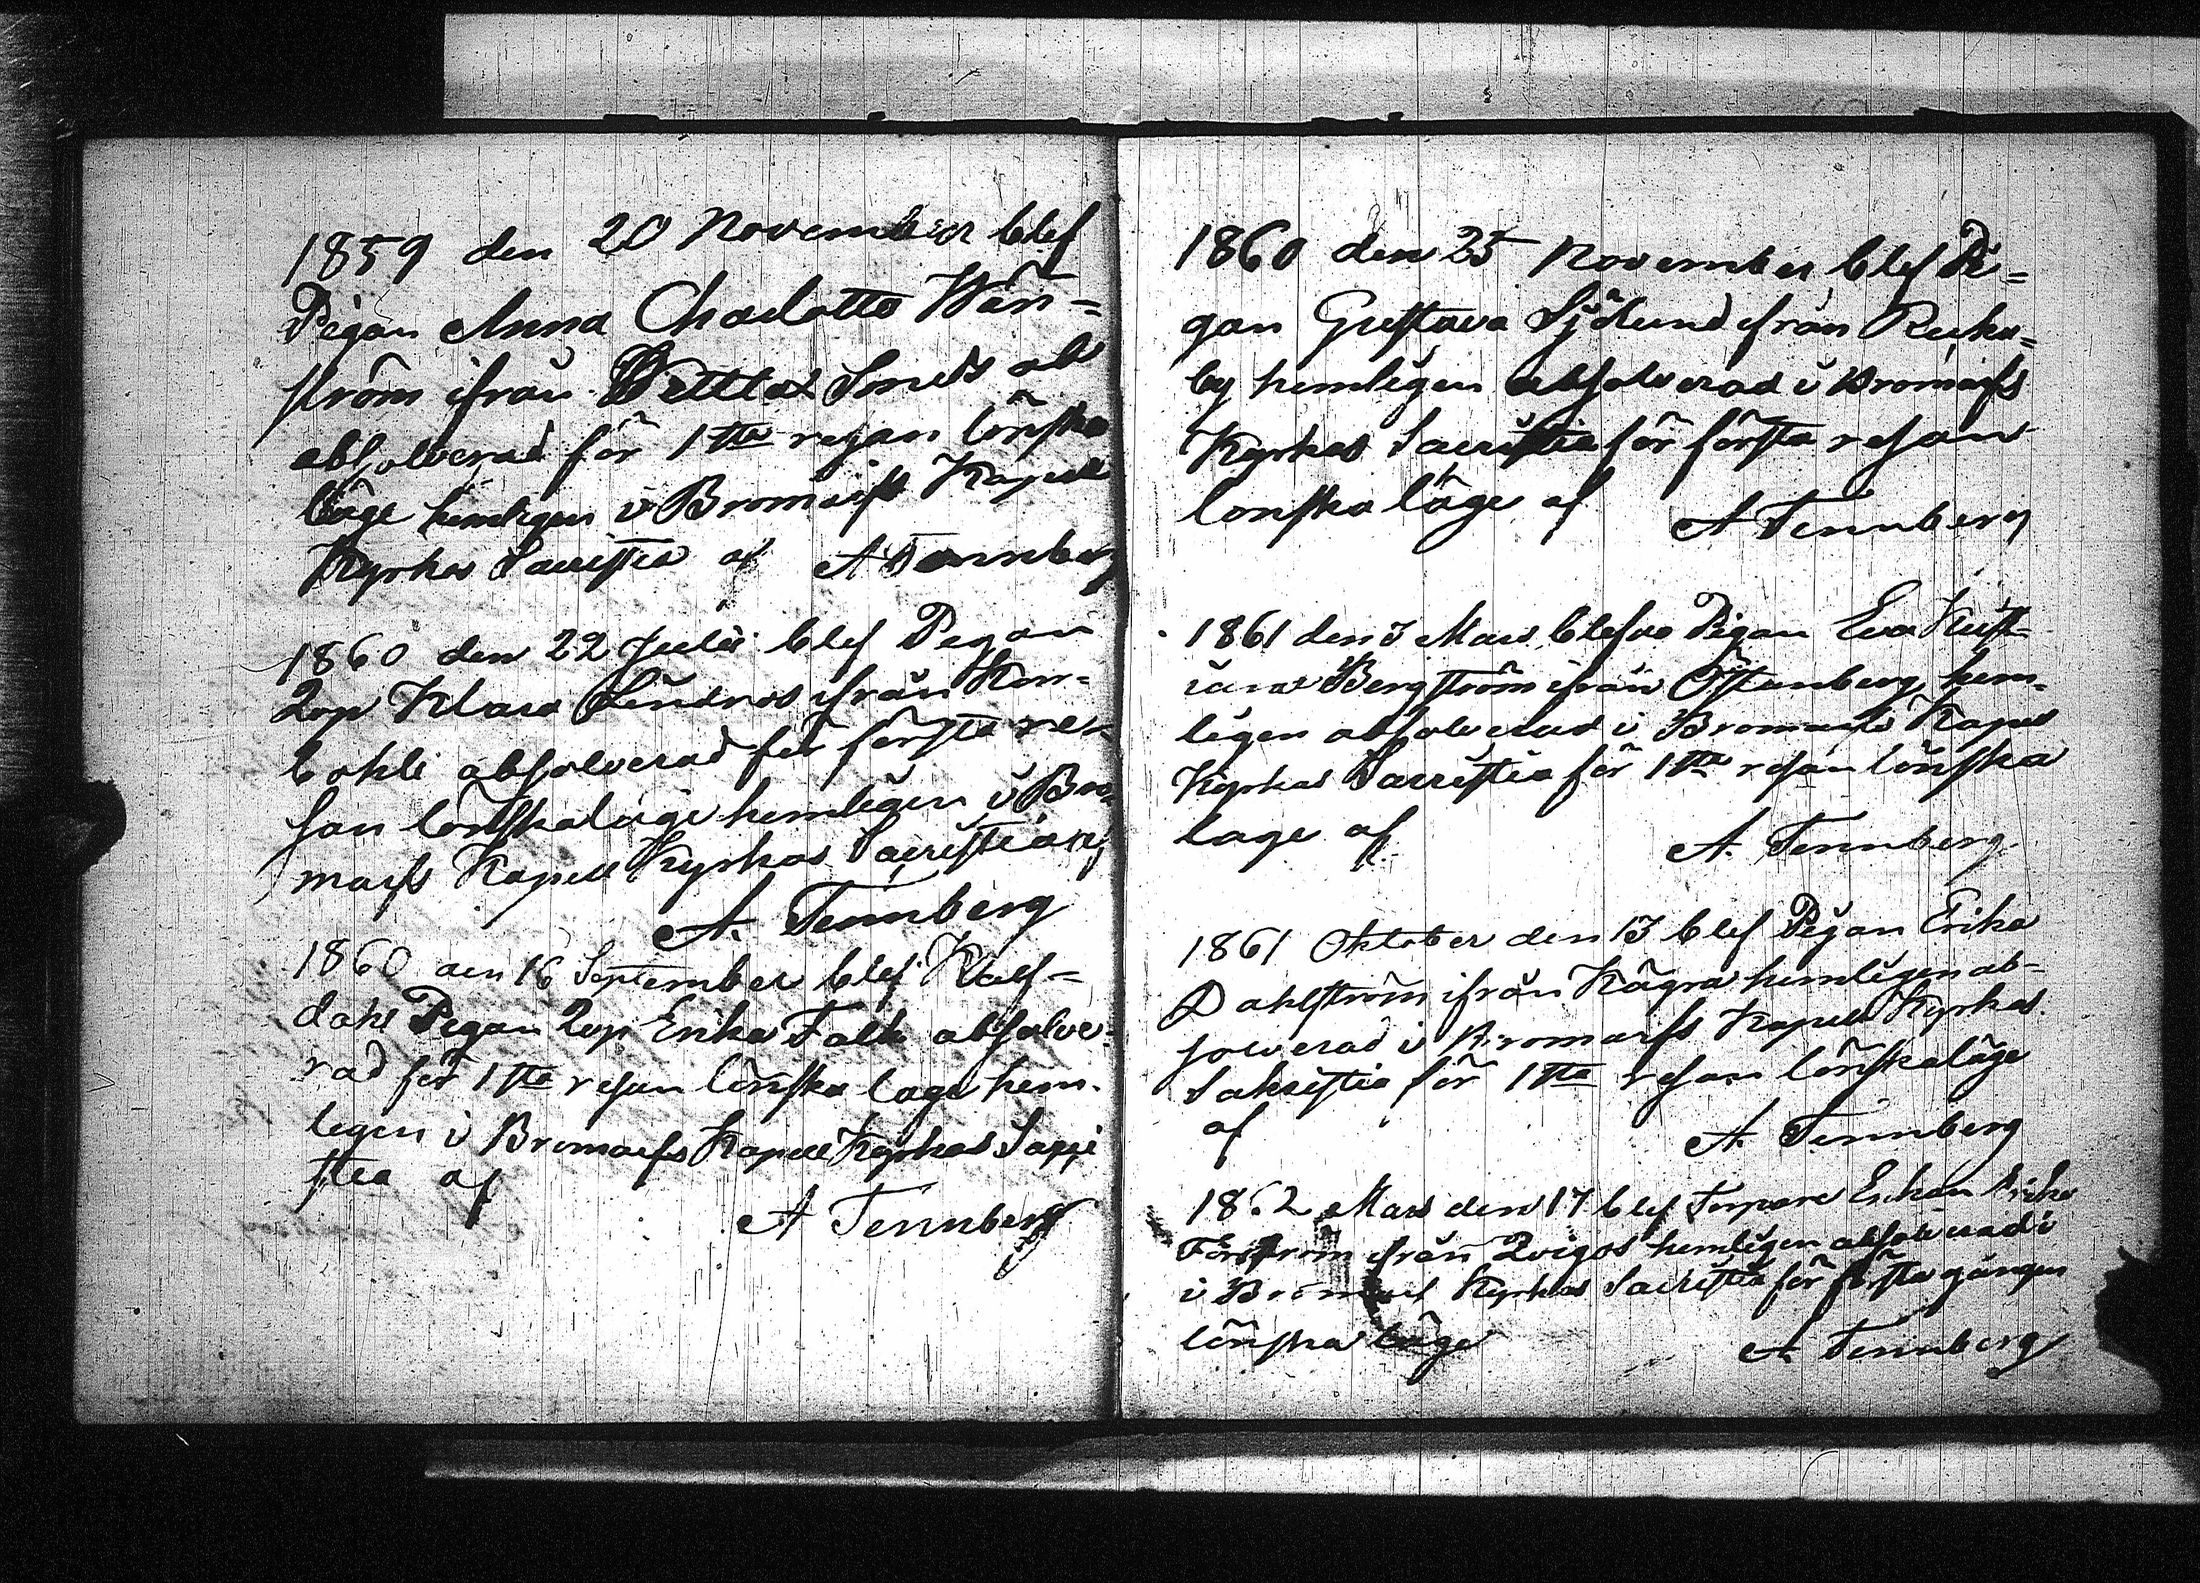 1859 den 20 November blef
Pigan Anna Charlotta Wän=
ström ifrån Smeds
absolverad för 1sta resan lönska
läge hemligen i Bromarfs Kapell
Kyrkas Sacristia af A Tennberg
1860 den 22 Julii blef Pigan
Lop Klara Lindros ifrån Kor=
bohli absolverad för första re=
san lönskaläge hemligen i Bro=
marfs Kapell Kyrkas Sacristia af
A. Tennberg
1860 den 16 September blef Kalf=
dahl Pigan Lop Erika Falk absolve=
rad för 1sta resan lönska läge hem=
ligen i Bromarfs Kapell Kyrkas Sacri
stia af
A Tennberg
1860 den 25 November blef Pi=
gan Gustava Sjölund ifrån Recka=
by hemligen absolverad i Bromarfs
Kyrkas Sacristia för första resan
lönska läge af A Tennberg
1861 den 3 Mars blefve Pigan Eva Krist=
ina Bergström ifrån Östanberg, hem=
ligen absolverad i Bromarfs Kapell
Kyrkas Sacristia för 1sta resan lönska
läge af A. Tennberg.
1861 Oktober den 13 blef Pigan Erika
Dahlström ifrån Kägra hemligen ab=
solverad i Bromarfs Kapell Kyrkas
Sakristia för 1sta resan lönskaläge
af A. Tennberg
1862 Mars den 17 blef Torpare Enkan
Forsström ifrån hemligen absolverad i
i Bromarf Kyrkas Sacristia för första gången
lönska läge A. Tennberg